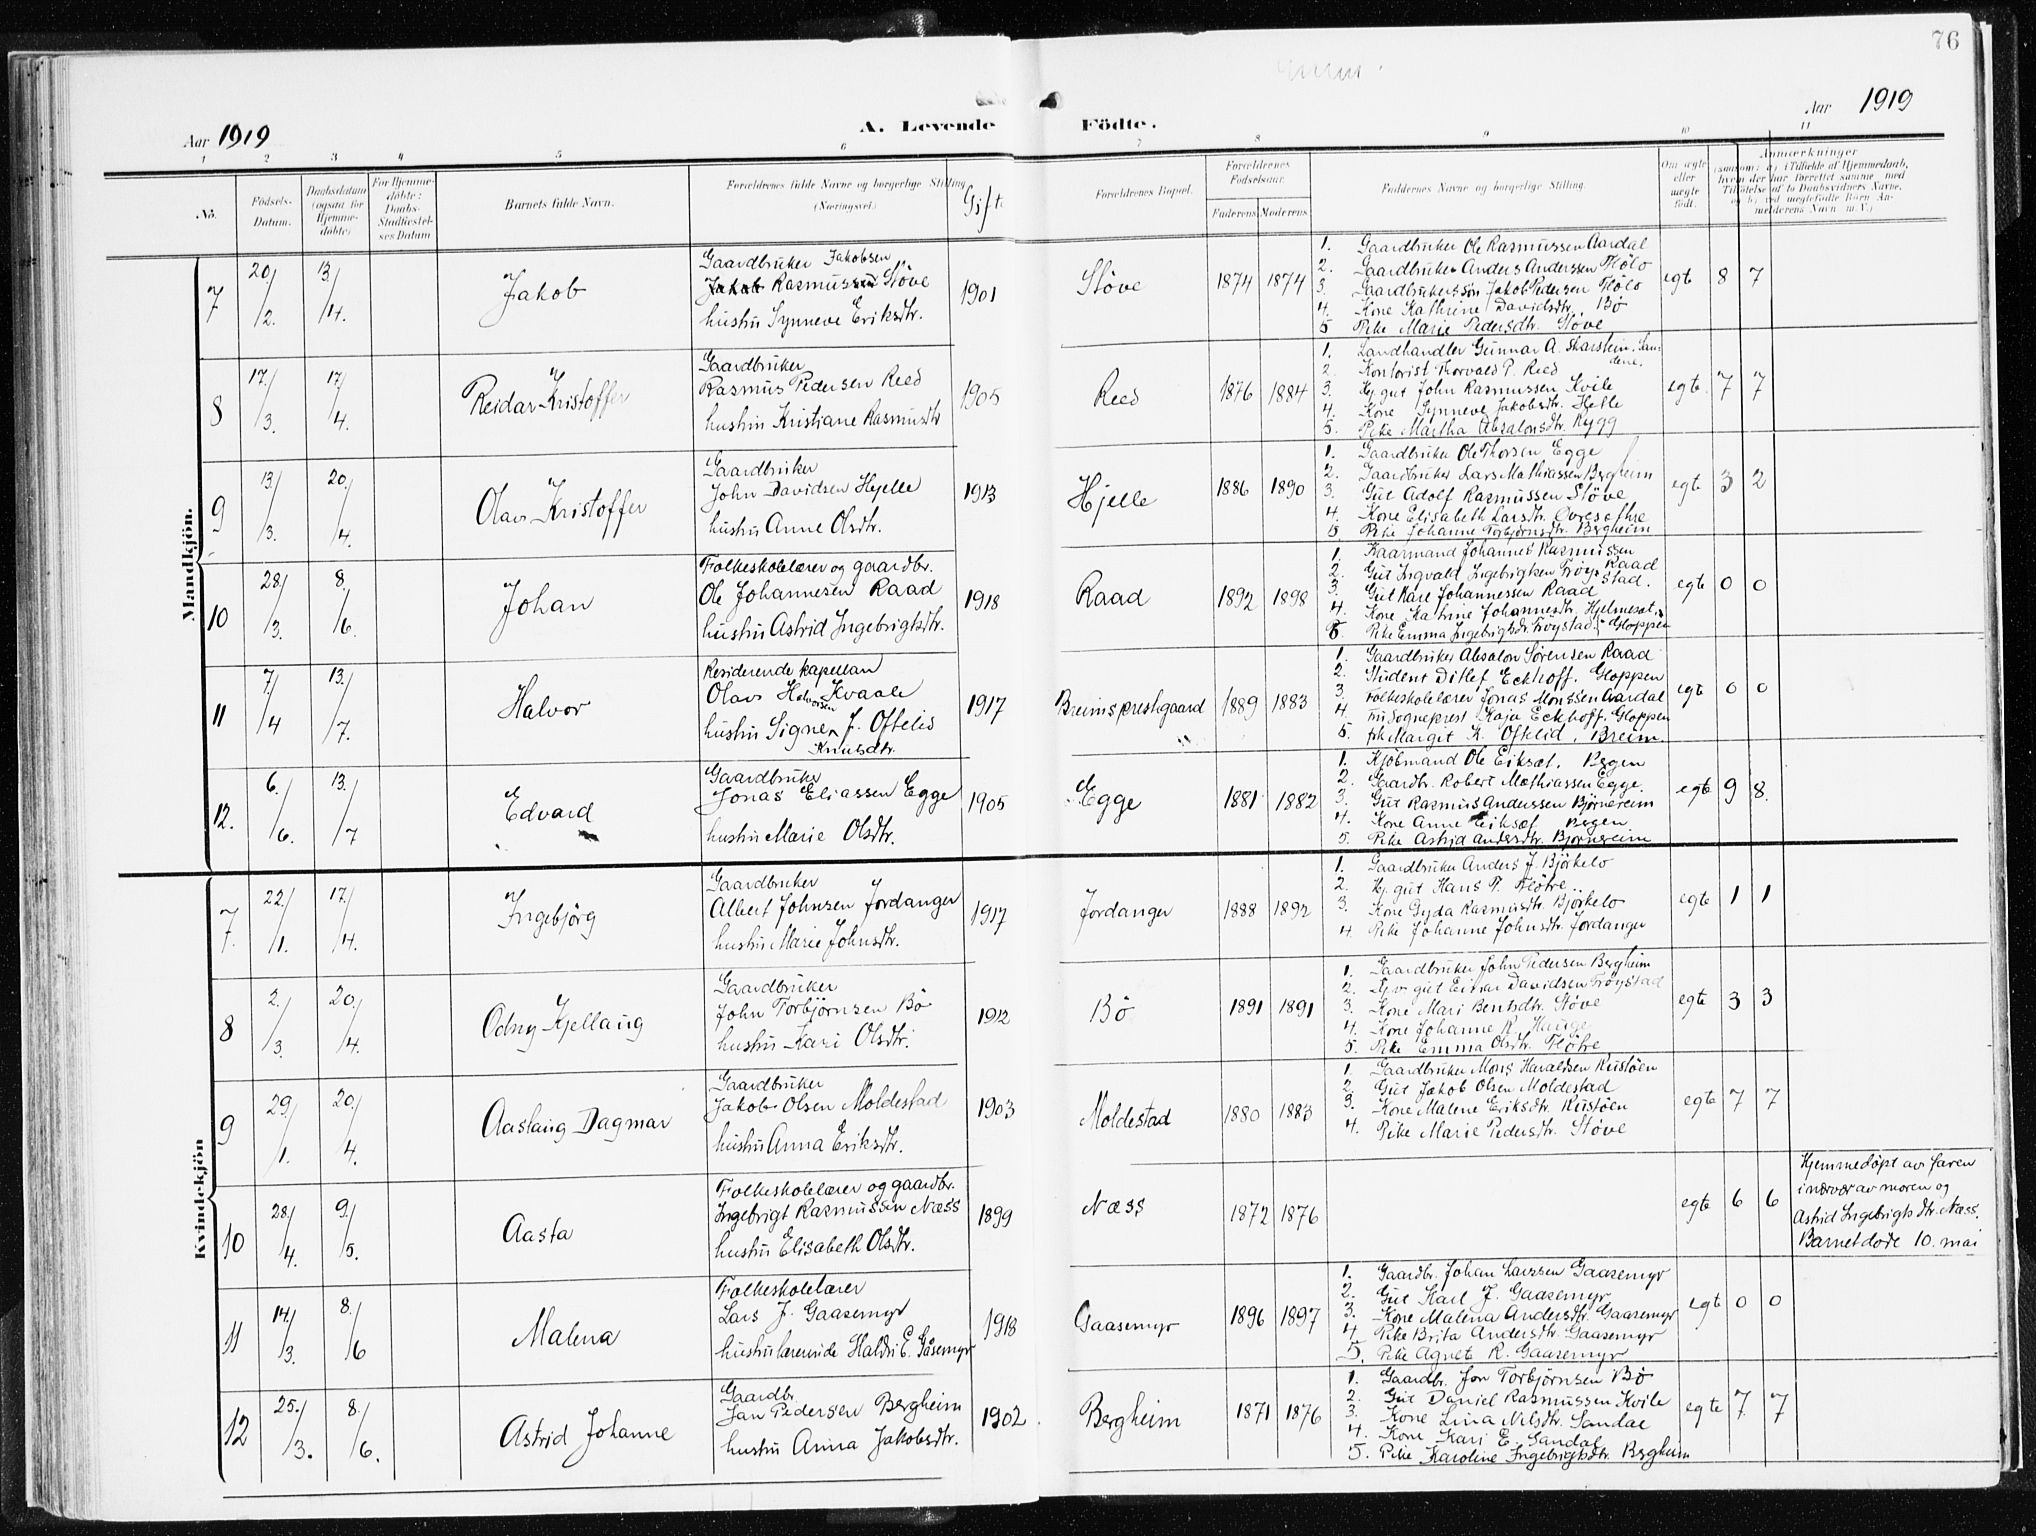 76
Aar 1919
A. Levende Födte.
Aar 1919
1 2 3 4 5 6 7 8 9 10 11
No.
Födsels-Datum.
Daabsdatum (ogsaa for Hjemme-döbte)
For Hjemme-döbte: Daabs-Stadfæstel-ses Datum
Barnets fulde Navn.
Forældrenes fulde Navne og borgerlige Stilling (Næringsvei)
Gift
Forældrenes Bopæl.
Forældrenes Födselsaar.
Faderens Moderens
Faddernes Navne og borgerlige Stilling.
Om ægte eller uægte födt.
Anmærkninger
(saasom: a) i Tilfælde af Hjemmedaab, hvem der har forrettet samme, med Tilföielse af to Daabsvidners Navne, og b) ved uægtefødte Børn Anmelderens Navn m.V.)
Mandkjön.
7 20/2. 13/4. Jakob
Gaardbruker Jakobsen
Jakob Rasmussen Støve
hustru Synneve Eriksdtr.
1901 Støve 1874 1874
1. Gaardbruker Ole Rasmussen Aardal
2. Gaardbruker Anders Anderssen Flölo
3. Gaardbrukerssön Jakob Pedersen Flölo
4. Kone Kathrine Davidsdtr. Bø
5 Pike Marie Pedersdtr. Støve
egte 8 7
8 17./3. 17/4. Reidar Kristoffer
Gaardbruker
Rasmus Pedersen Reed
hustru Kristiane Rasmusdtr
1905 Reed 1876 1884
1. Landhandler Gunnar A. Skarstein. Sandene.
2. Kontorist Thorvald P. Reed
3. Hj. gut John Rasmussen Kvile
4. Kone Synneve Jakobsdtr. Hjelle
5. Pike Martha Absalonsdtr. Rygg
egte. 7 7
9 13/3. 20./4. Olav Kristoffer
Gaardbruker
John Davidsen Hjelle
hustru Anne Olsdtr.
1913 Hjelle 1886 1890
1. Gaardbruker Ole Thorsen Egge
2. Gaardbruker Lars Mathiassen Bergheim
3. Gut Adolf Rasmussen Støve
4. Kone Elisabeth Larsdtr. Øvresethre
5. Pike Johanne Torbjørnsdtr. Bergheim
egte 3 2
10 28./3. 8./6. Johan
Folkeskolelærer og gaardbr.
Ole Johannesen Raad
hustru Astrid Ingebrigtsdtr.
1918 Raad 1892 1898
1. Kaarmand Johannes Rasmussen Raad
2. Gut Ingvald Ingebrigtsen Frøystad.
3. Gut Kåre Johannessen Raad
4. Kone Katrine Johannesdtr. Hjelmeset
5. Pike Emma Ingebrigtsdr. Frøystad, Gloppen
egte 0 0
11 7/4 13./7. Halvor
Residerende kapellan
Olav Halvorsen Kvaale
hustru Signe J. Oftelid
Knutsdtr.
1917 Breims prestegaard 1889 1883
1. Gaardbruker Absalon Sørensen Raad
2. Student Ditlef Eckhoff. Gloppen
3. Folkeskolelærer Jonas Monssen Aardal
4. Fru Sogneprest Kaja Eckhoff. Gloppen
5. frk Margit K. Oftelid, Breim.
egt 0 0
12. 6./6. 13./7 Edvard
Gaardbruker
Jonas Eliassen Egge
hustru Marie Olsdtr.
1905 Egge 1881 1882
1. Kjøbmand Ole Eikset. Bergen
2. Gaardbr. Robert Mathiassen Egge.
3. Gut Rasmus Anderssen Bjørnereim
4. Kone Anne Eikset Bergen
5. Pike Astrid Andersdtr. Bjørnereim
egte 9 8.
Kvindekjön
7. 22./1. 17./4. Ingebjörg
Gaardbruker
Albert Johnsen Jordanger
hustru Marie Johnsdtr.
1917 Jordanger 1888 1892
1. Gaardbruker Anders J. Björkelo
2. Hj. gut Hans T. Flötre
3. Kone Gyda Rasmusdtr. Björkelo
4. Pike Johanne Johnsdtr. Jordanger
egte 1 1
8 2./3. 20./4. Odny Kjellaug
Gaardbruker
John Torbjørnsen Bö
hustru Kari Olsdtr.
1912 Bö 1891 1891
1. Gaardbruker John Pedersen Bergheim
2. Hj. gut Einar Davidsen Frøystad
3. Kone Mari Bentsdtr. Støve
4. Kone Johanne R. Hauge
5. Pike Emma Olsdtr. Flötre
egte 3 3
9 29./1. 20./4. Aaslaug Dagmar
Gaardbruker
Jakob Olsen Moldestad
hustru Anna Eriksdtr.
1903 Moldestad 1880 1883
1. Gaardbruker Mons Haraldsen Rustöen
2. Gut Jakob Olsen Moldestad
3. Kone Malene Eriksdtr. Rustöen
4. Pike Marie Pedersdtr. Støve
egte 7 7
10 28./4. 9./5. Aasta
Folkeskolelærer og gaardbr.
Ingebrigt Rasmussen Næss
hustru Elisabeth Olsdtr.
1899 Næss 1872 1876
egte 6 6
Hjemmedøpt av faren
i nærvær av moren og
Astrid Ingebrigtsdtr. Næss.
Barnet døde 10. mai
11 14./3. 8./6 Malena
Folkeskolelærer
Lars J. Gaasemyr
hustru lærerinde Haldis E. Gåsemyr
1918 Gaasemyr 1896 1897
1. Gaardbr. Johan Larssen Gaasemyr
2. Gut Karl J. Gaasemyr
3. Kone Malena Andersdtr. Gaasemyr
4. Pike Brita Andersdtr. Gaasemyr
5. Pike Agnete R. Gaasemyr
egte 0 0
12 25./3. 8./6. Astrid Johanne
Gaardbr.
Jan Pedersen Bergheim
hustru Anna Jakobsdtr.
1902. Bergheim 1871 1876
1. Gaardbr. Jon Torbjørnsen Bö
2. Gut Daniel Rasmussen Kvile
3. Kone Lina Nilsdtr. Sandal
4. Kone Kari E. Sandal
5. Pike Karoline Ingebrigtsdtr. Bergheim
egte 7 7